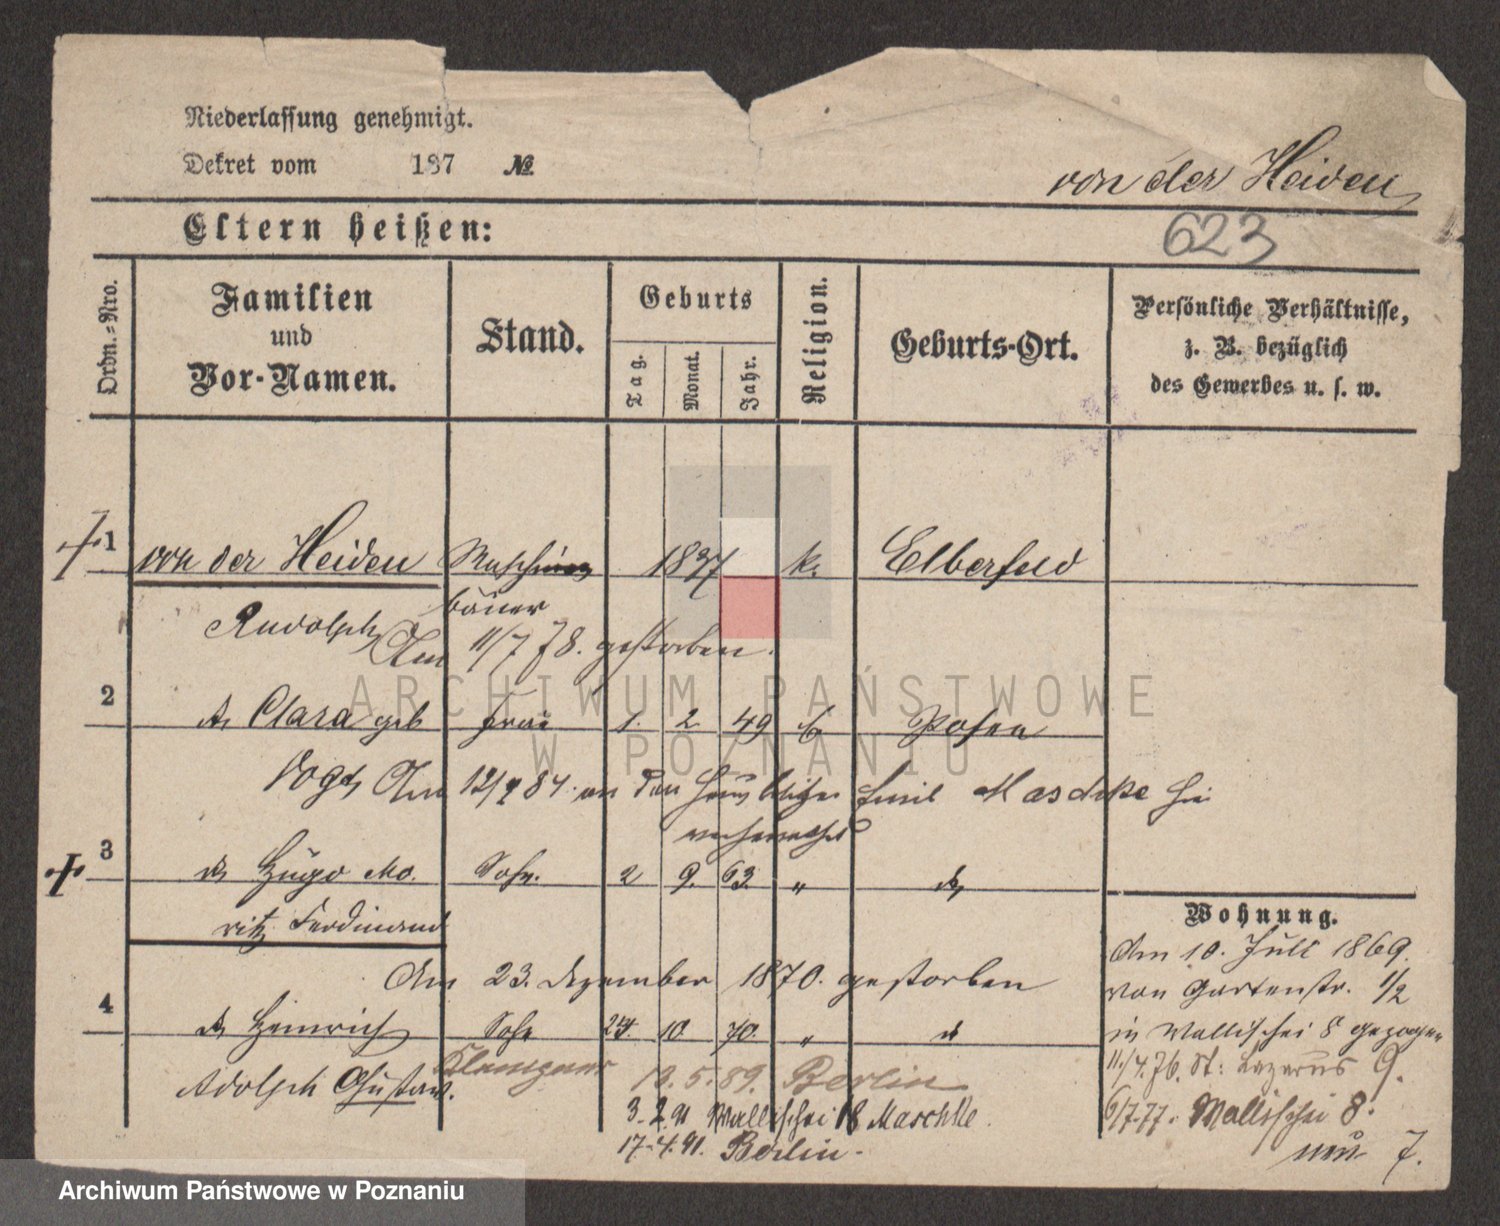 Niederlassung genehmigt.
Dekret vom 187 №
von der Heiden
Eltern heißen:
623
Ordn.-Nro.
Familien
und
Vor-Namen.
Stand.
Geburts
Tag.
Monat.
Jahr.
Religion.
Geburts-Ort.
Persönliche Verhältnisse,
z. B. bezüglich
des Gewerbes u. s. w.
1 von der Heiden Maschinen 1837 k. Elberfeld
bauer
Rudolph Am 11/7 78. gestorben.
2 Clara geb Frau 1. 2. 49 Posen
Vogt Am 84. an den Emil Maschke hie
3 Hugo Mo. Sohn. 2 9. 63. "
ritz Ferdinand
Am 23. Dezember 1870. gestorben
4 Heinrich Sohn 24 10 70. "
Adolph Gustav. Klempner 18.5.89. Berlin
3.2.91 Wallischei 18 Maschke.
17.4.91. Berlin.
Wohnung.
Am 10. Juli 1869.
von Gartenstr. 1/2
in Wallischei 8 gezogen
11./4.76. St: Lazarus 9.
6/7.77. Wallischei 8.
neu 7.
ARCHIWUM PAŃSTWOWE
W POZNANIU
Archiwum Państwowe w Poznaniu